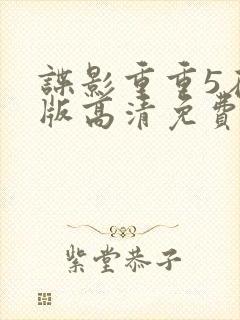 諜影重重5
版高清免費
紫堂恭子